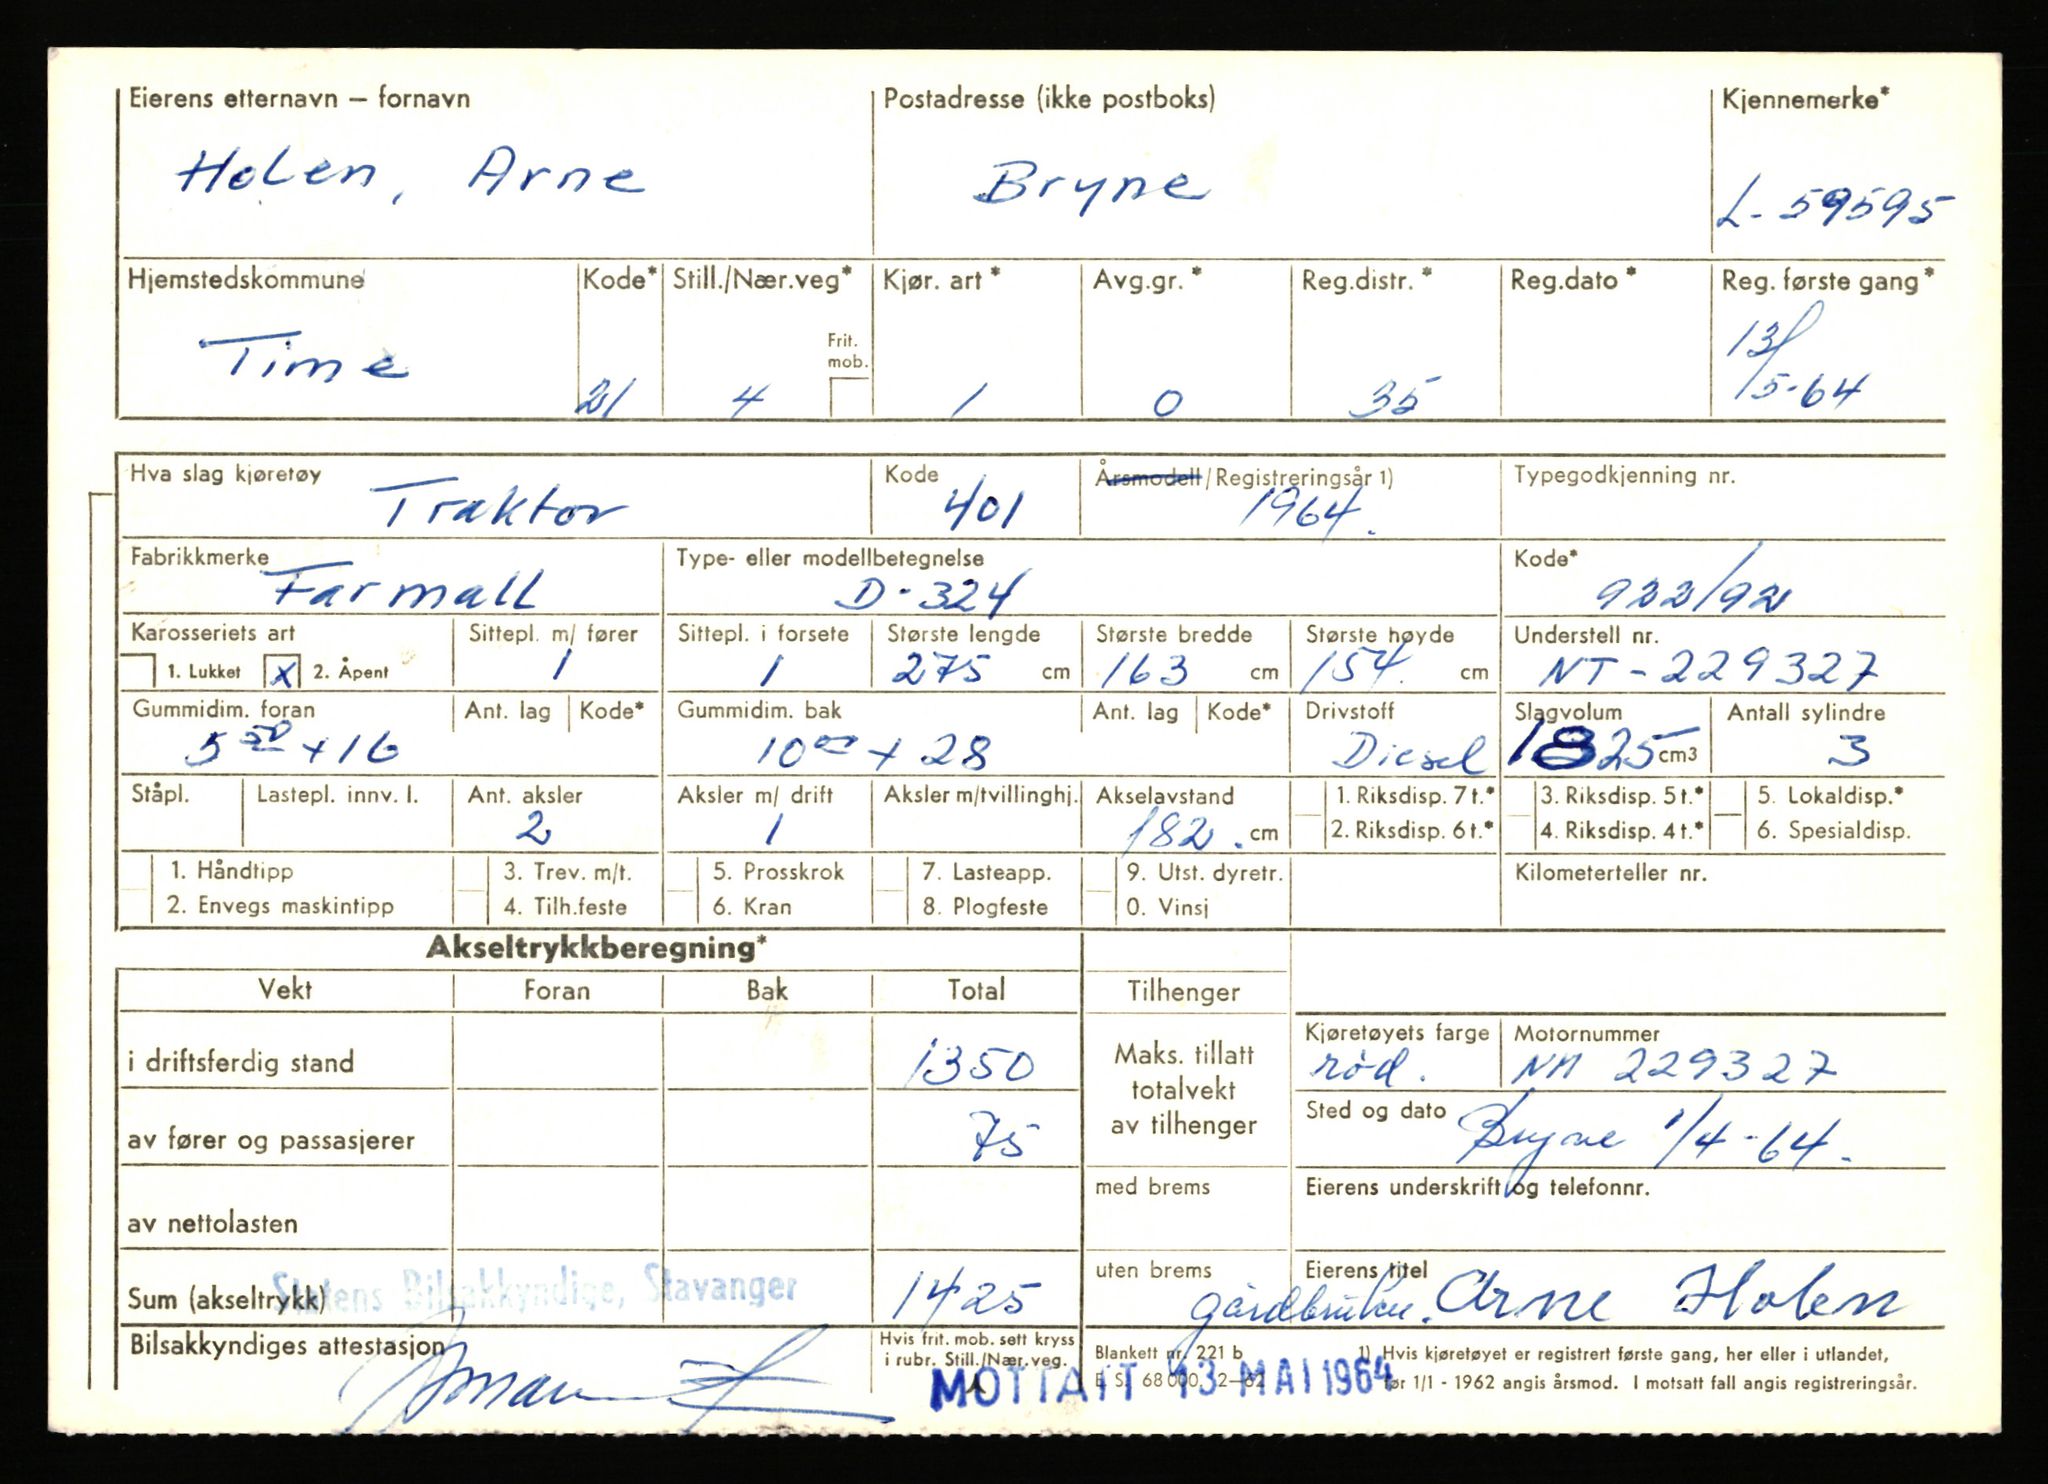 Eierens etternavn – fornavn Postadresse (ikke postboks) Kjennemerke*
Holen, Arne Bryne L-59595
Hjemstedskommune Kode* Still./Nær.veg* Kjør. art* Avg.gr.* Reg.distr.* Reg.dato* Reg. første gang*
Frit. mob.
Time 21 4 1 0 35 13/5-64
Hva slag kjøretøy Kode Årsmodell/Registreringsår 1) Typegodkjenning nr.
Traktor 401 1964.
Fabrikkmerke Type- eller modellbetegnelse Kode*
Farmall D-324 922/92
Karosseriets art Sittepl. m/ fører Sittepl. i forsete Største lengde Største bredde Største høyde Understell nr.
1. Lukket x 2. Åpent 1 1 275 cm 163 cm 154 cm NT-229327
Gummidim. foran Ant. lag Kode* Gummidim. bak Ant. lag Kode* Drivstoff Slagvolum Antall sylindre
5 50 x 16 10 00 x 28 Diesel 1825 cm3 3
Ståpl. Lastepl. innv. l. Ant. aksler Aksler m/ drift Aksler m/tvillinghj. Akselavstand 1. Riksdisp. 7 t.* 3. Riksdisp. 5 t.* 5. Lokaldisp.*
2 1 182. cm 2. Riksdisp. 6 t.* 4. Riksdisp. 4 t.* 6. Spesialdisp.
1. Håndtipp 3. Trev. m/t. 5. Prosskrok 7. Lasteapp. 9. Utst. dyretr. Kilometerteller nr.
2. Envegs maskintipp 4. Tilh.feste 6. Kran 8. Plogfeste 0. Vinsj
Akseltrykkberegning*
Vekt Foran Bak Total Tilhenger
Kjøretøyets farge Motornummer
i driftsferdig stand 1350 Maks. tillatt rød. NM 229327
totalvekt
Sted og dato Bryne 1/4-64.
av fører og passasjerer 75 av tilhenger
med brems Eierens underskrift og telefonnr.
av nettolasten
uten brems Eierens titel
Statens Bilsakkyndige, Stavanger
Sum (akseltrykk) 1425 gårdbruker. Arne Holen
Bilsakkyndiges attestasjon Hvis frit. mob. sett kryss i rubr. Still./Nær.veg. Blankett nr. 221 b 1) Hvis kjøretøyet er registrert første gang, her eller i utlandet,
E. S. 68 000. 12–62 før 1/1 - 1962 angis årsmod. I motsatt fall angis registreringsår.
MOTTATT 13 MAI 1964